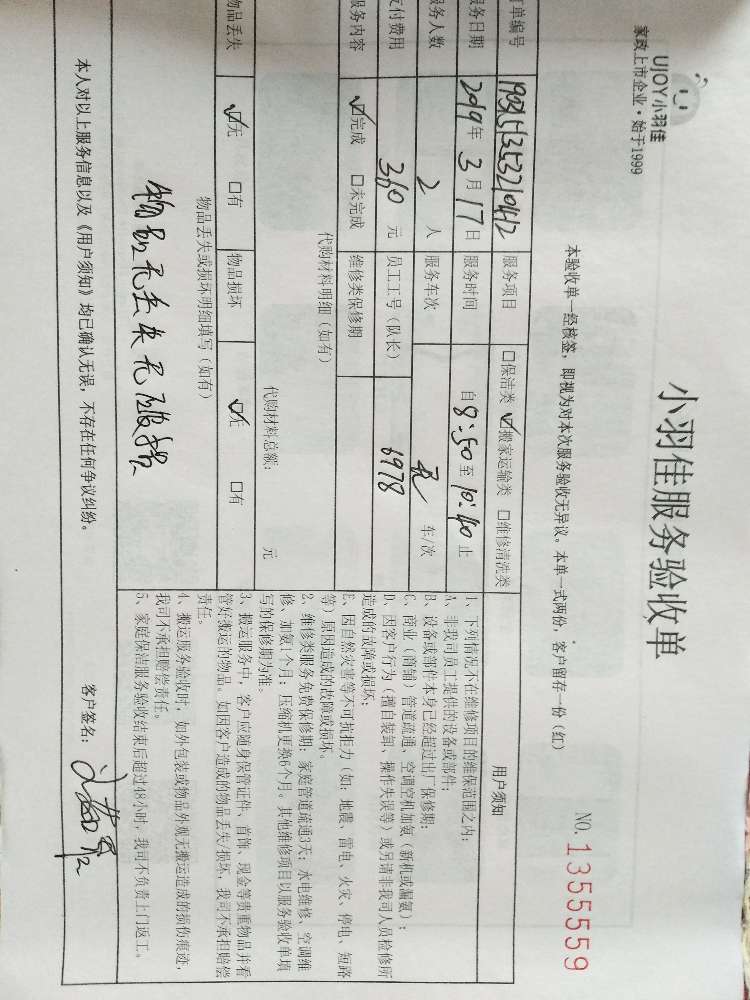 UJOY小羽佳
家政上市企业·始于1999
小羽佳服务验收单
NO.1355559
本验收单一经核签，即视为对本次服务验收无异议。本单一式两份，客户留存一份（红）
订单编号
服务项目 □保洁类 ☑搬家运输类 □维修清洗类
服务日期 2019年3月17日 服务时间 自8:50至10:40止
服务人数 2人 服务车次 车/次
支付费用 360元 员工工号（队长） 6978
服务内容 ☑完成 □未完成 维修类保修期
代购材料明细（如有）
代购材料总额： 元
物品丢失 ☑无 □有 物品损坏 ☑无 □有
物品丢失或损坏明细填写（如有）
物品无丢失无破损
用户须知
1、下列情况不在维修项目的维保范围之内：
A、非我司员工提供的设备或部件；
B、设备或部件本身已经超过出厂保修期；
C、商业（商铺）管道疏通、空调空机加氨（新机或漏氨）；
D、因客户行为（擅自装卸、操作失误等）或另请非我司人员检修所
造成的故障或损坏；
E、因自然灾害等不可抗拒力（如：地震、雷电、火灾、停电、短路
等）原因造成的故障或损坏。
2、维修类服务免费保修期：家庭管道疏通3天；水电维修、空调维
修、加氨1个月；压缩机更换6个月。其他维修项目以服务验收单填
写的保修期为准。
3、搬运服务中，客户应随身保管证件、首饰、现金等贵重物品并看
管好搬运的物品。如因客户造成的物品丢失/损坏，我司不承担赔偿
责任。
4、搬运服务验收时，如外包装或物品外观无搬运造成的损伤痕迹，
我司不承担赔偿责任。
5、家庭保洁服务验收结束后超过48小时，我司不负责上门返工。
本人对以上服务信息以及《用户须知》均已确认无误，不存在任何争议纠纷。 客户签名：